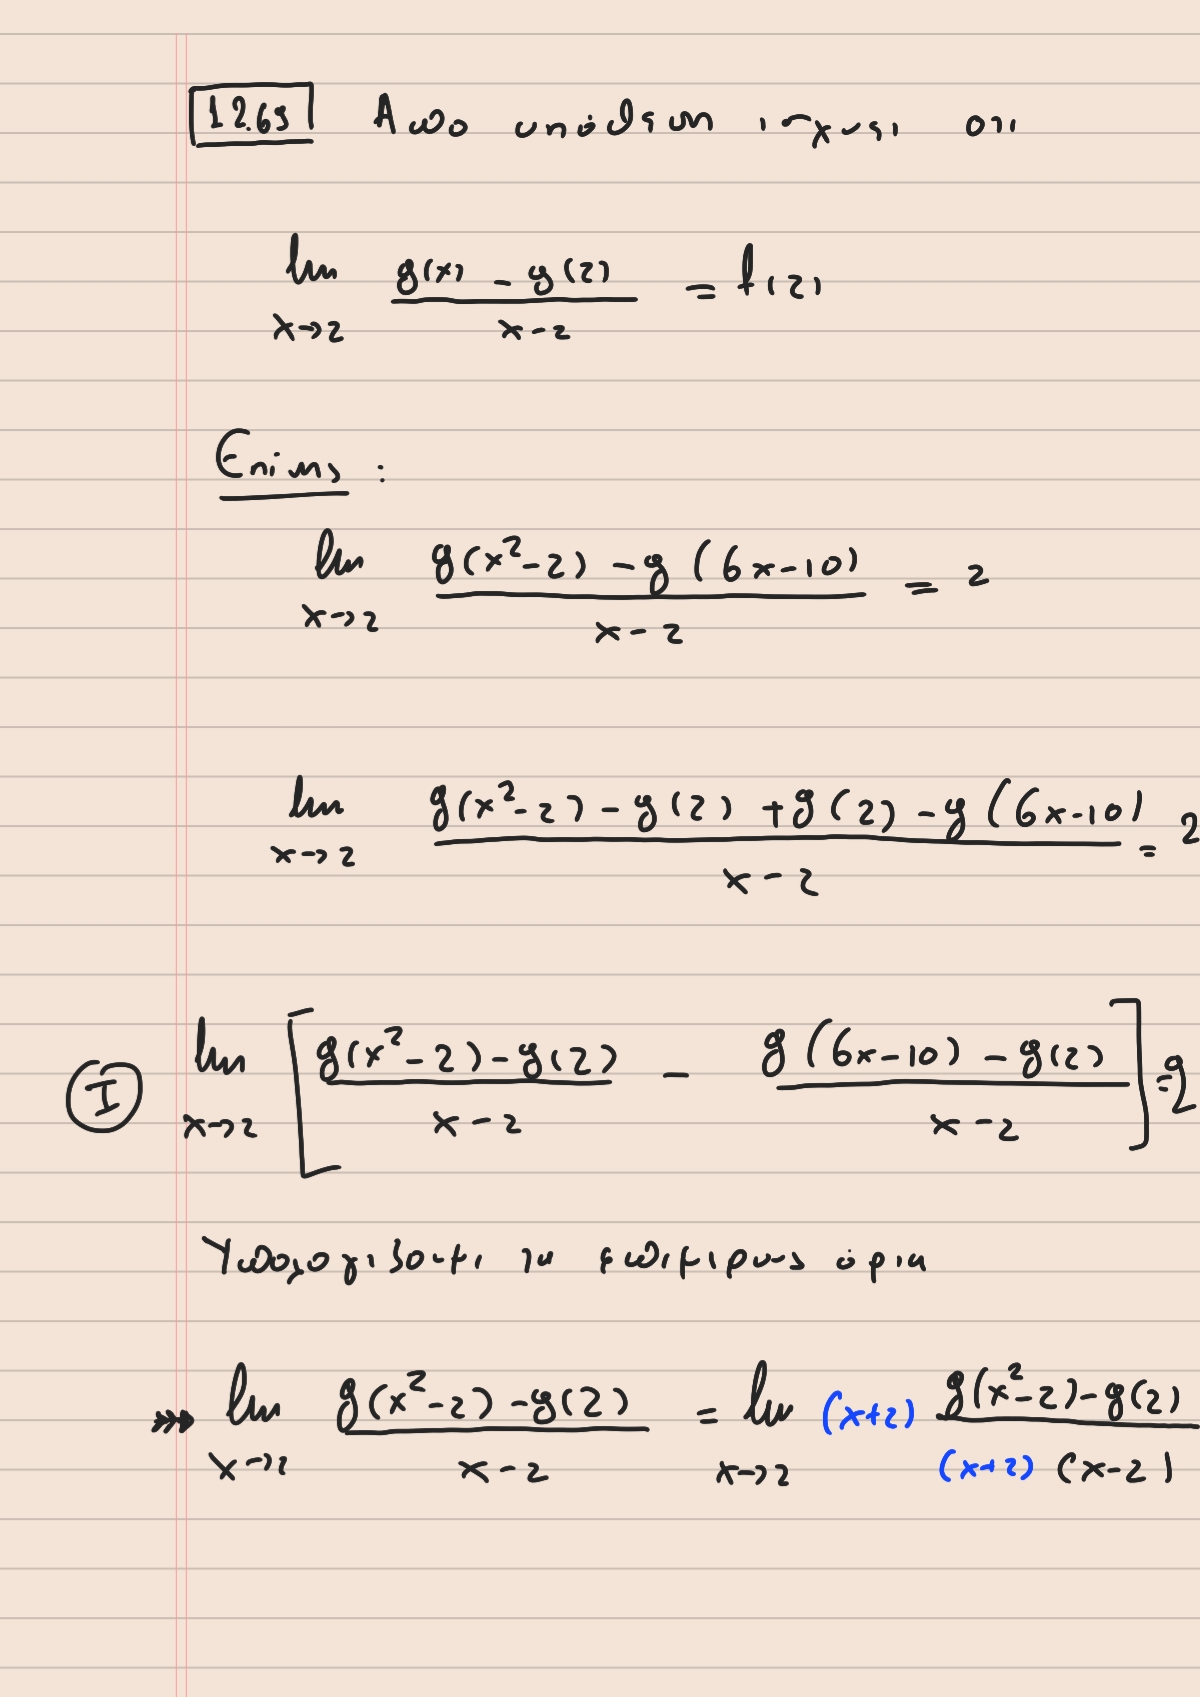 12.69 Από υπόθεση ισχύει ότι
lim x→2 g(x) - g(2) / x-2 = f(2)
Επίσης :
lim x→2 g(x²-2) - g(6x-10) / x-2 = 2
lim x→2 g(x²-2) - g(2) + g(2) - g(6x-10) / x-2 = 2
Ⓘ lim x→2 [ g(x²-2) - g(2) / x-2 - g(6x-10) - g(2) / x-2 ] = 2
Υπολογίζουμε τα επιμέρους όρια
lim x→2 g(x²-2) - g(2) / x-2 = lim x→2 (x+2) g(x²-2) - g(2) / (x+2) (x-2)